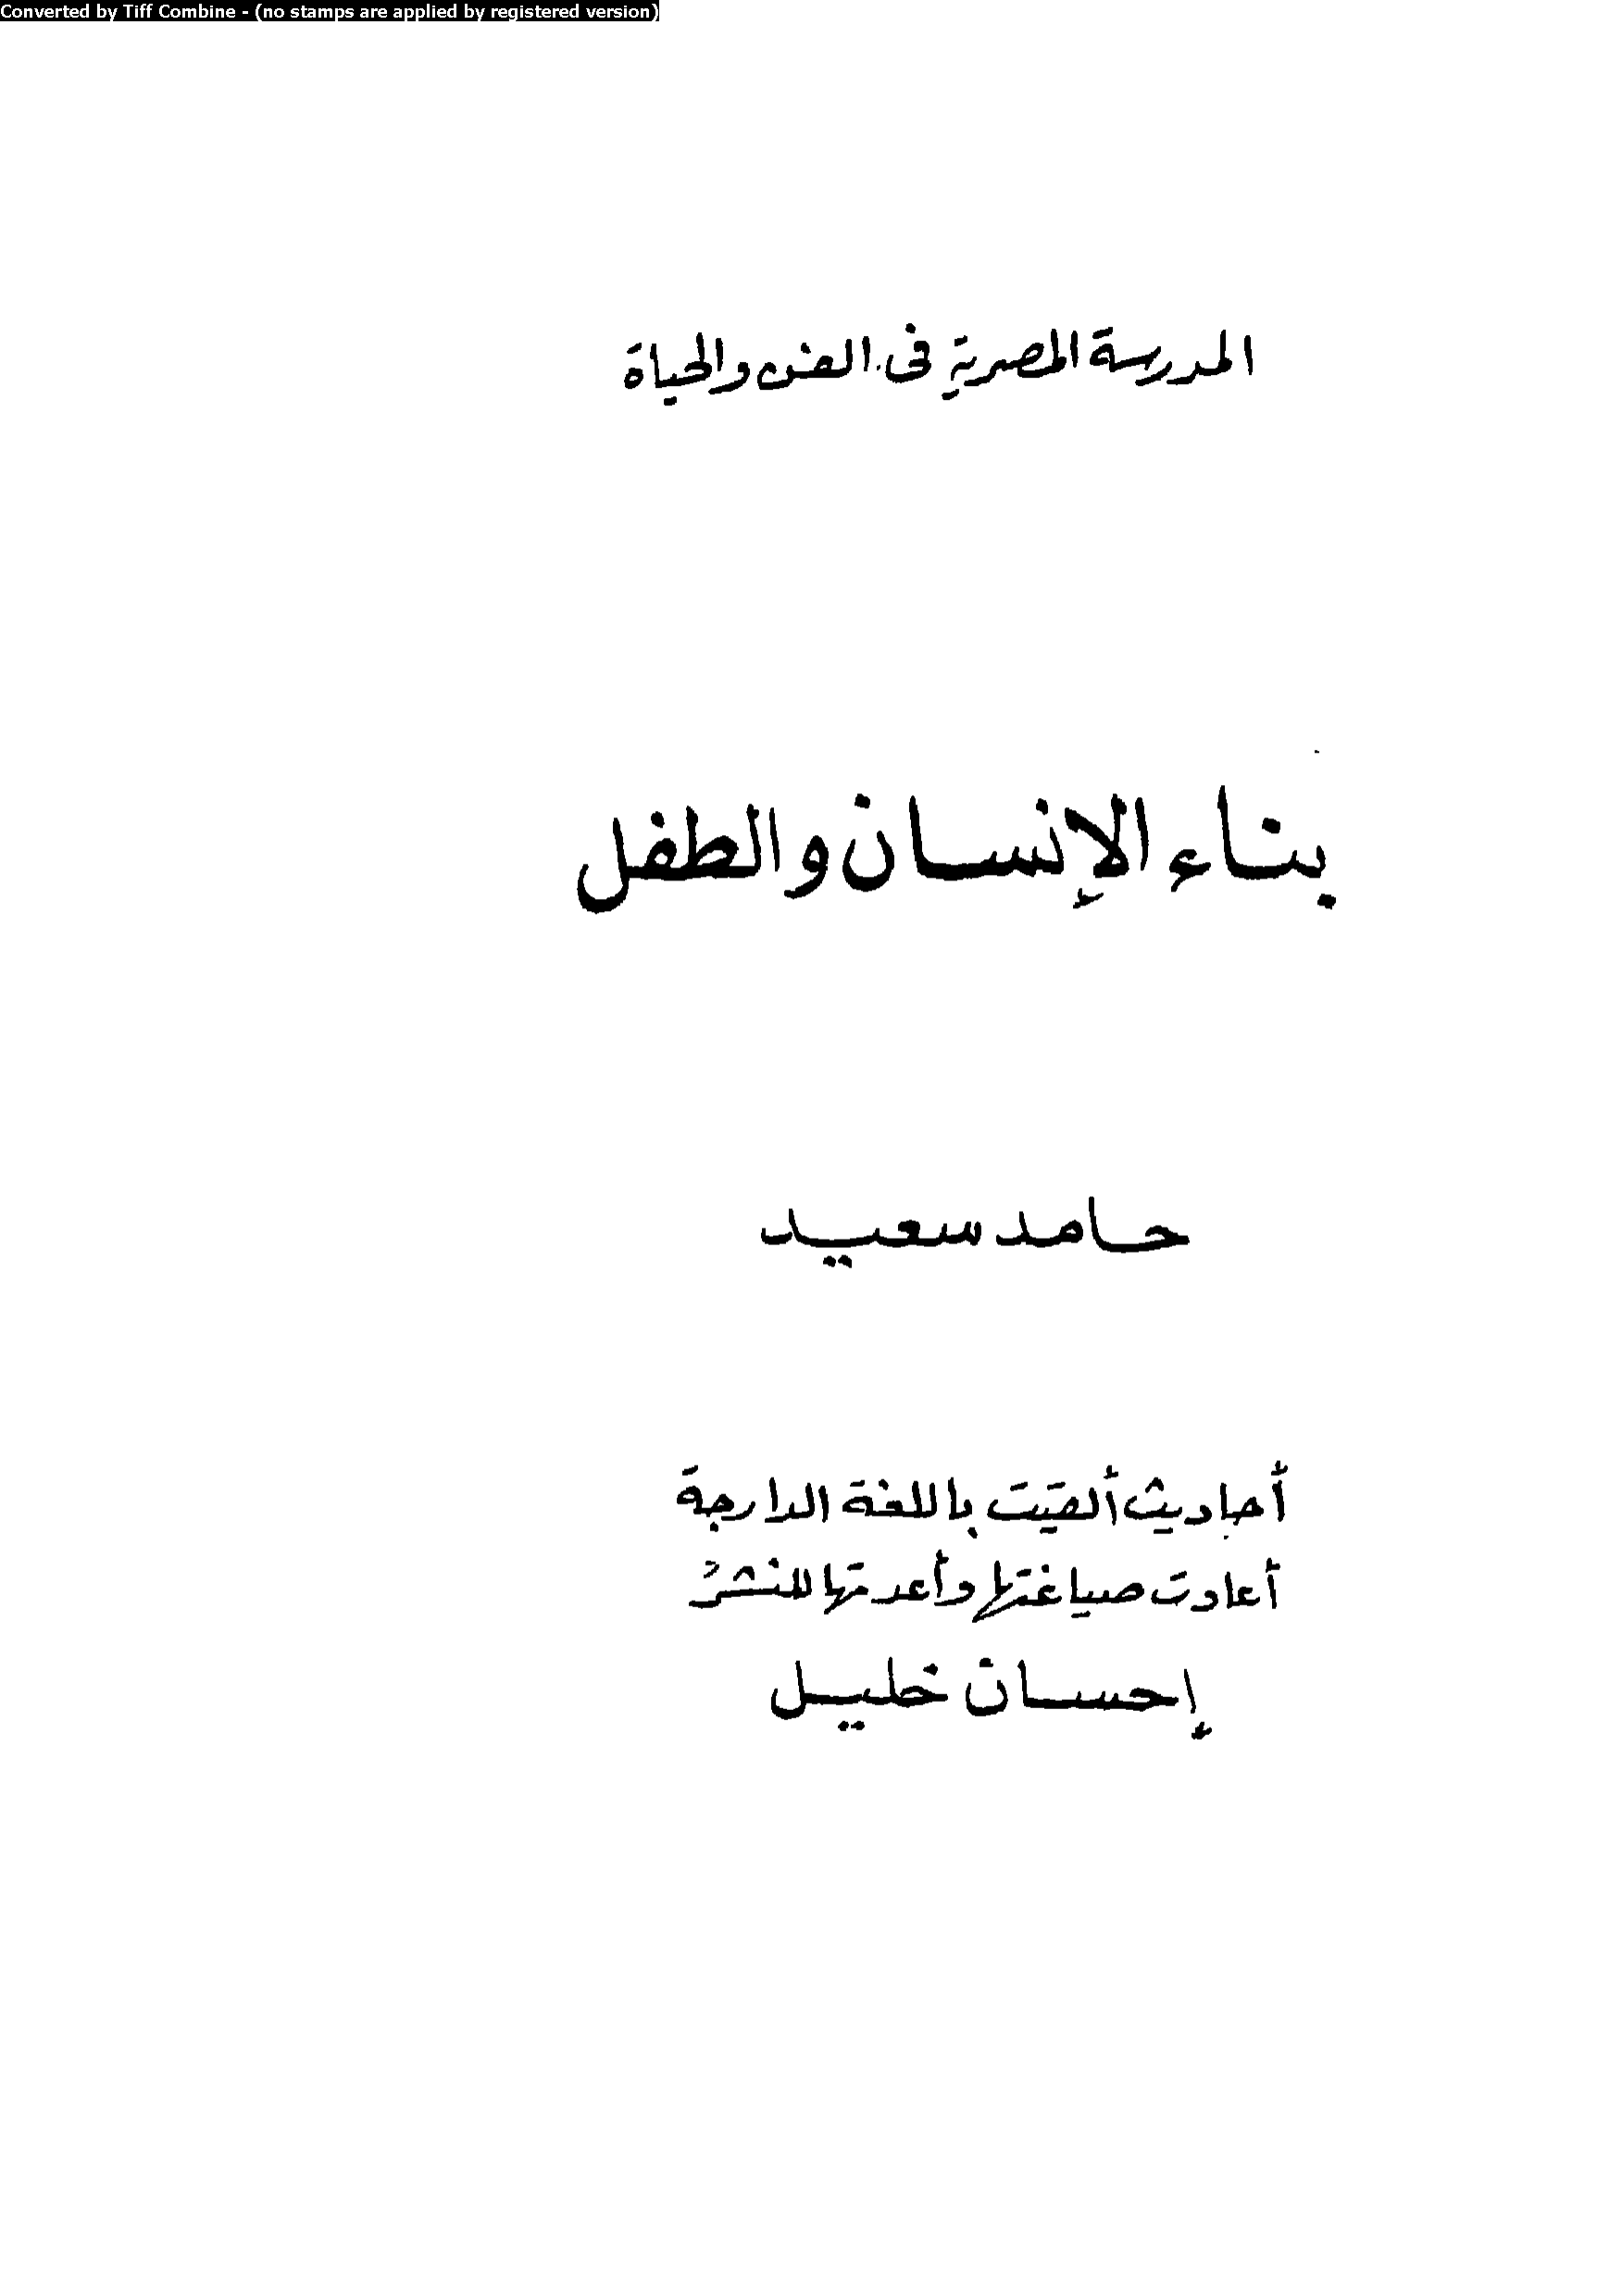 Converted by Tiff Combine - (no stamps are applied by registered version)
المدرسة المصرية فى الفن والحياة
بناء الإنسان والطفل
حامد سعيد
أحاديث ألقيت باللغة الدارجة
أعادت صياغتها وأعدتها للنشر
إحسان خليل